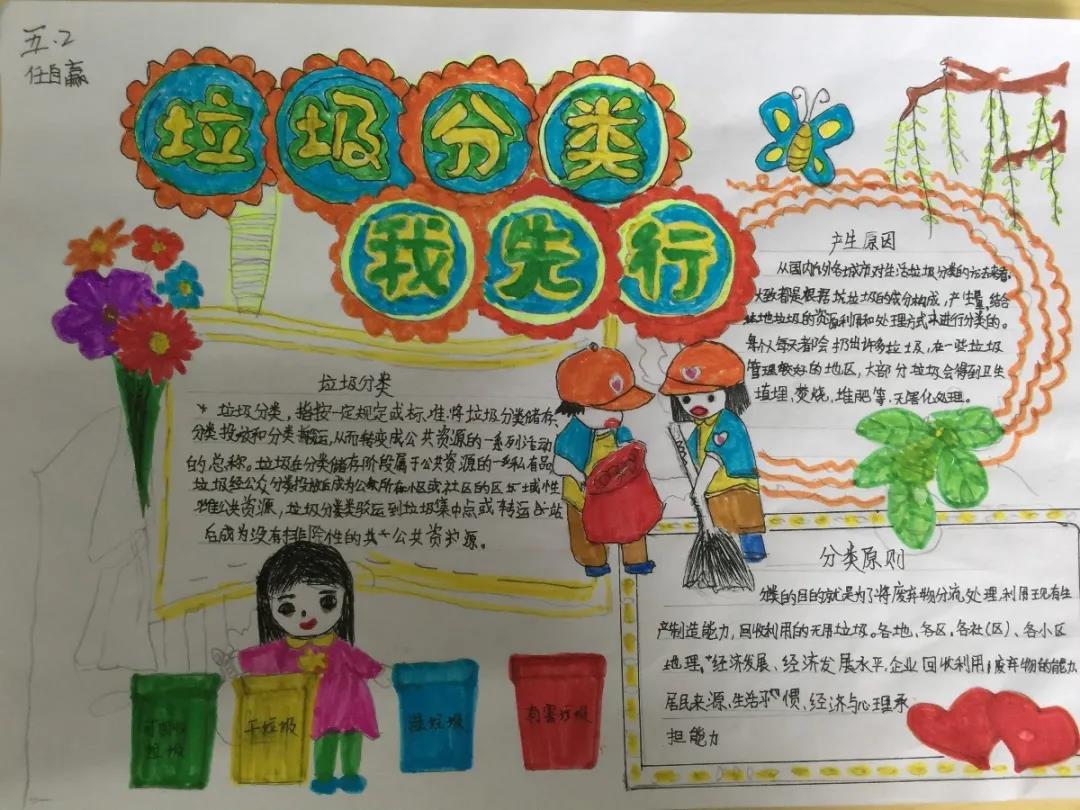 五.2
任自赢
垃圾分类
我先行
产生原因
从国内外各城市对生活垃圾分类的方法来看,
大致都是根据垃圾的成分构成,产生量,结合
本地垃圾的资源利用和处理方式来进行分类的。
每人每天都会扔出许多垃圾,在一些垃圾
管理较好的地区,大部分垃圾会得到卫生
填埋,焚烧,堆肥等,无害化处理。
垃圾分类
垃圾分类,指按一定规定或标准,将垃圾分类储存,
分类投放和分类搬运,从而转变成公共资源的一系列活动
的总称。垃圾在分类储存阶段属于公共资源的私有品
垃圾经公众分类投放后成为公众所在小区或社区的区域性
公共资源,垃圾分类驳运到垃圾集中点或转运站
后成为没有排除性的公共资源。
分类原则
分类的目的就是为了将废弃物分流处理,利用现有生
产制造能力,回收利用的无用垃圾。各地、各区,各社(区)、各小区
地理,经济发展、经济发展水平,企业回收利用废弃物的能力
居民来源、生活习惯、经济与心理承
担能力
垃圾
干垃圾
湿垃圾
有害垃圾